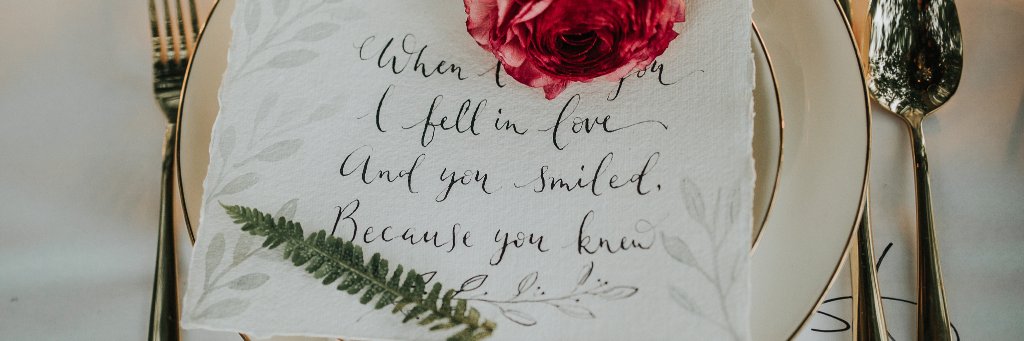 When I you
I fell in love
And you smiled.
Because you knew